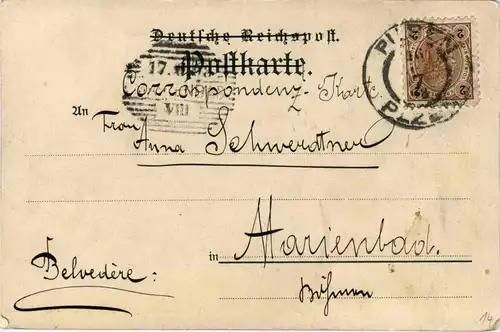 Deutsche Reichspost.
Postkarte.
17.
VIII
Correspondenz-Karte
PILSEN
PLZEŇ
2
2
An
Frau
Anna Schwerdtner
in Marienbad.
Böhmen
Belvedère:
14